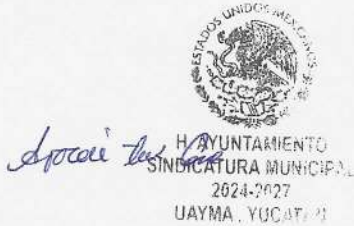 ESTADOS UNIDOS MEXICANOS
H. AYUNTAMIENTO
SINDICATURA MUNICIPAL
2024-2027
UAYMA, YUCATÁN